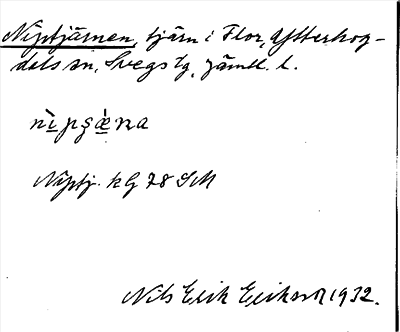 Niptjärnen, tjärn i Flor, Ytterhog-
dals sn, Svegs tg, Jämtl. l.
Niptj. kG 78 SM
Nils Erik Eriksson 1932.